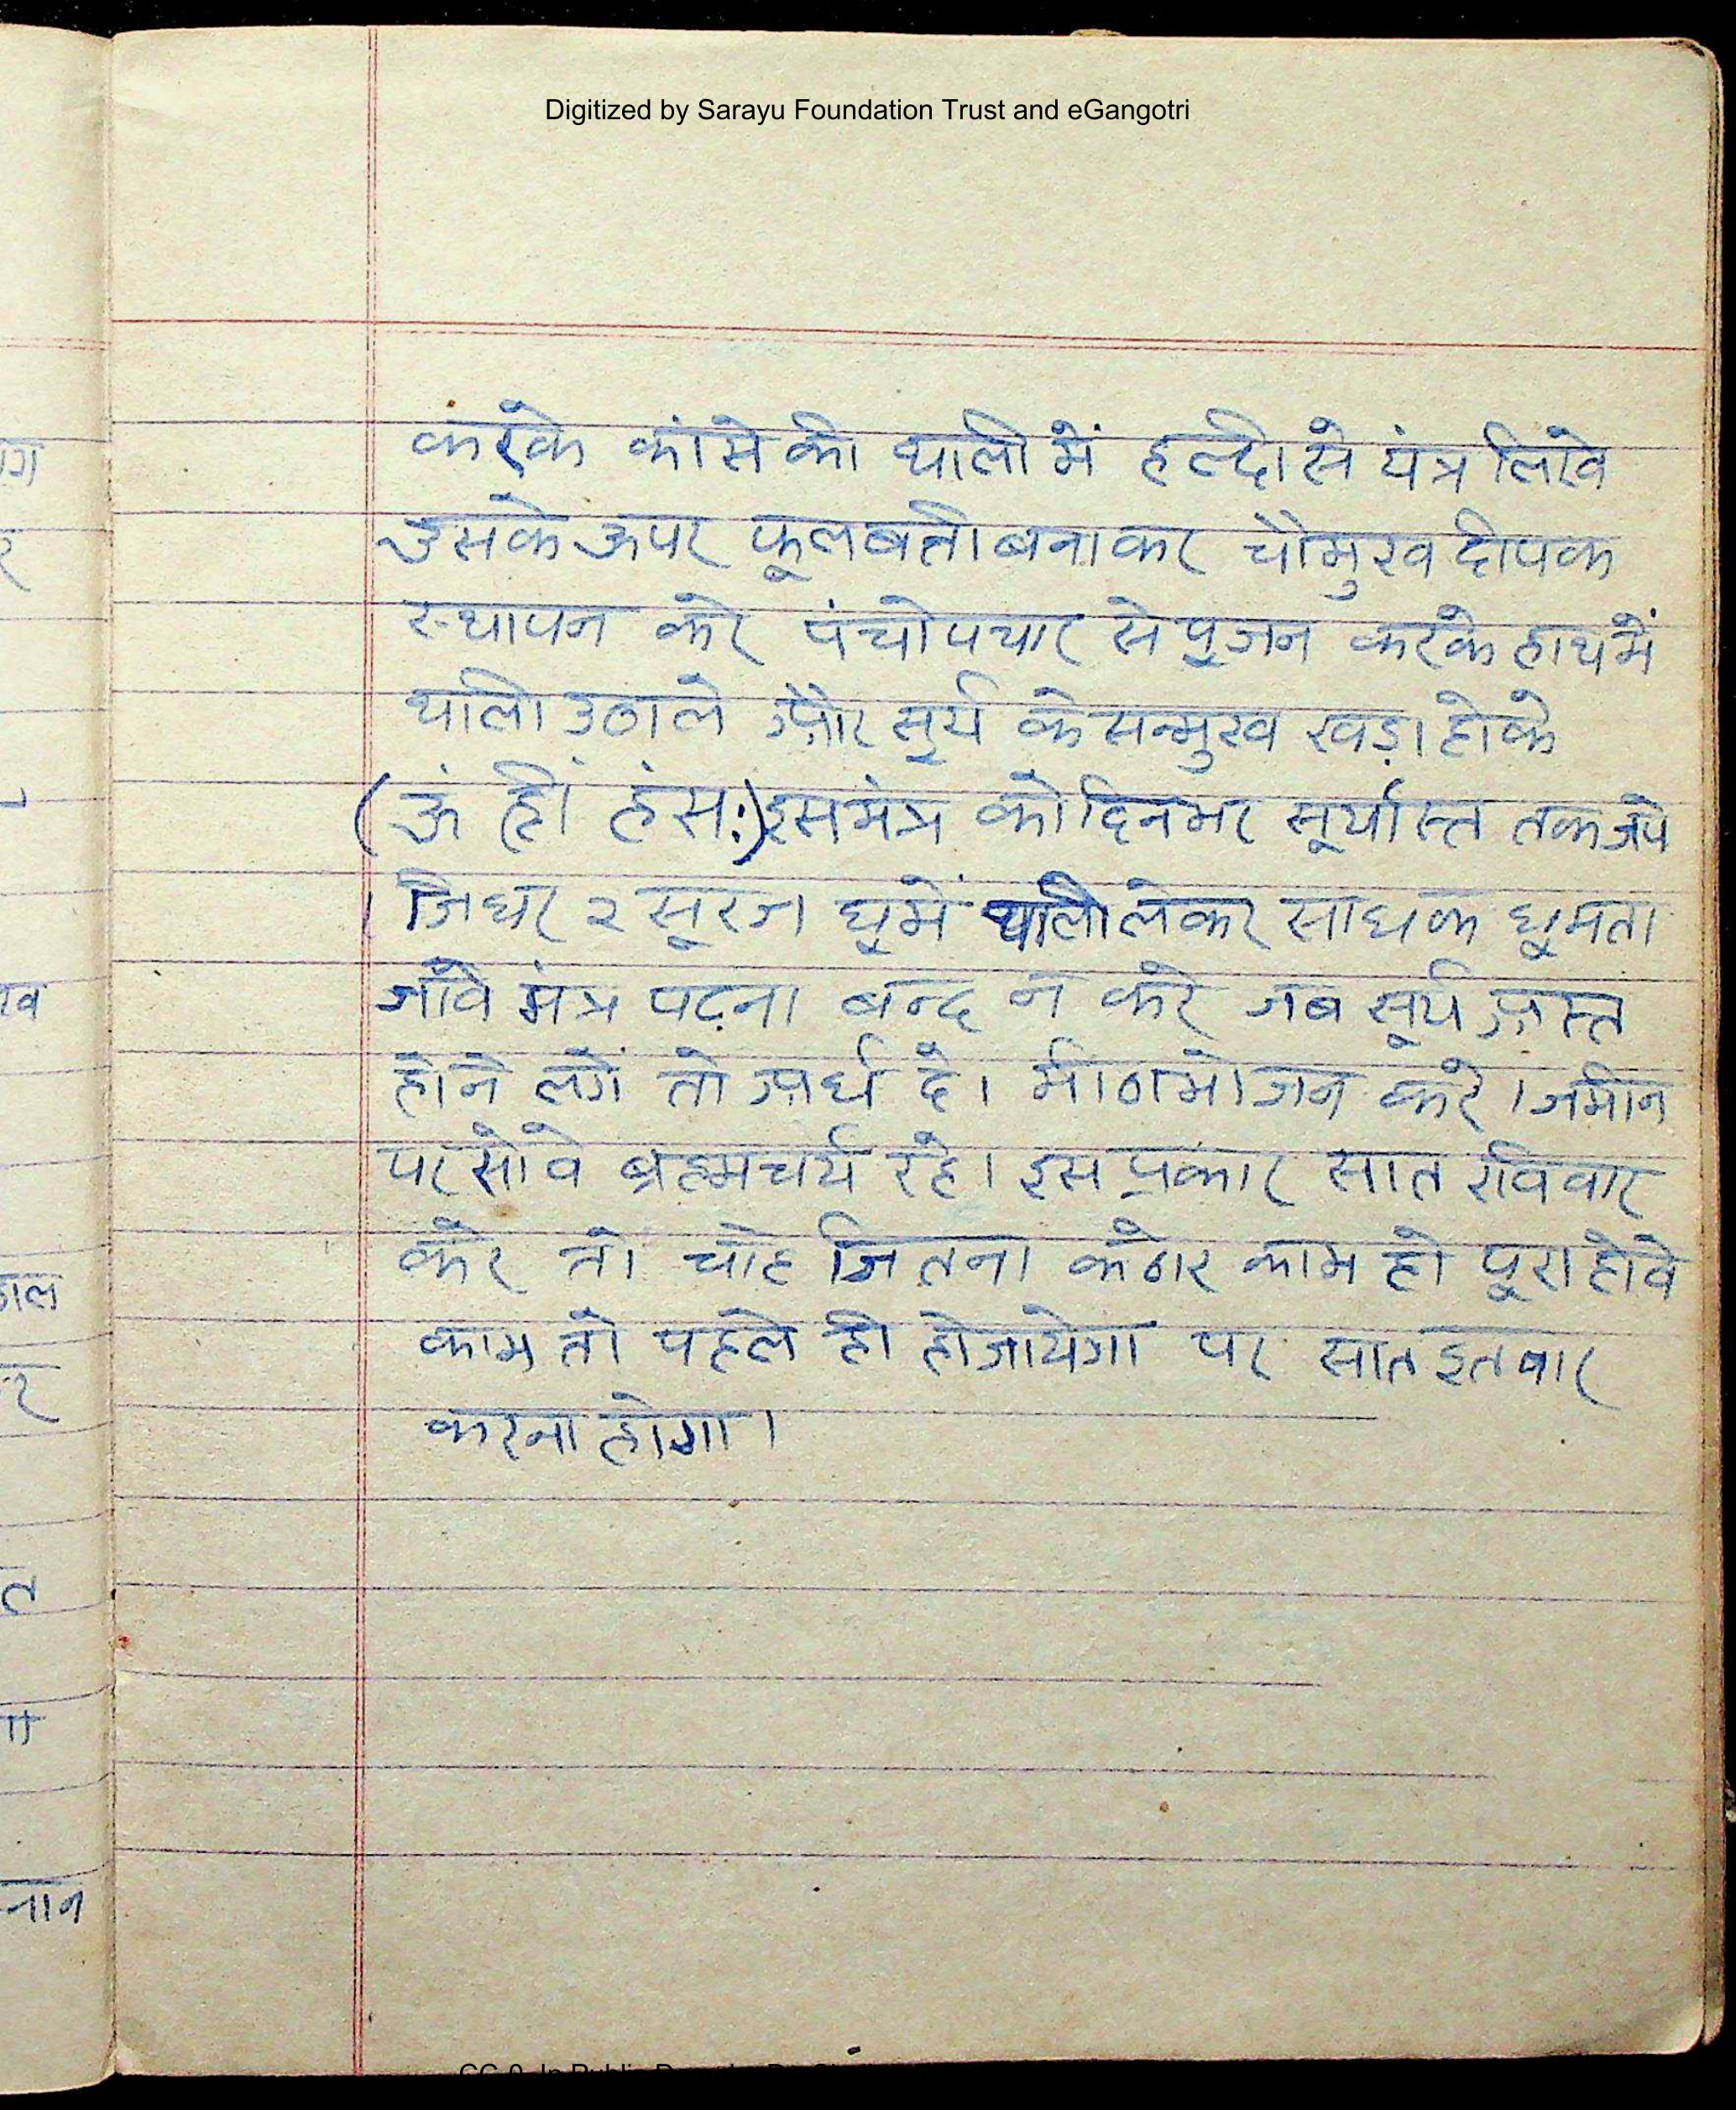 Digitized by Sarayu Foundation Trust and eGangotri
करके कांसे की थाली में हल्दी से यंत्र लिखे
उसके ऊपर फूलबती बनाकर चौमुख दीपक
स्थापन करे पंचोपचार से पूजन करके हाथ में
थाली उठाले और सूर्य के सन्मुख खड़ा होके
(ऊं ह्रीं हंसः) इस मंत्र को दिनभर सूर्यास्त तक जपे
जिधर २ सूरज घूमें थाली लेकर साधक घूमता
जावे मंत्र पढ़ना बन्द न करे जब सूर्य अस्त
होने लगें तो अर्घ दे। मीठा भोजन करे। जमीन
पर सोवे ब्रह्मचर्य रहे। इस प्रकार सात रविवार
करे तो चाहे जितना कठोर काम हो पूरा होवे
काम तो पहले ही हो जायेगा पर सात इतवार
करना होगा।